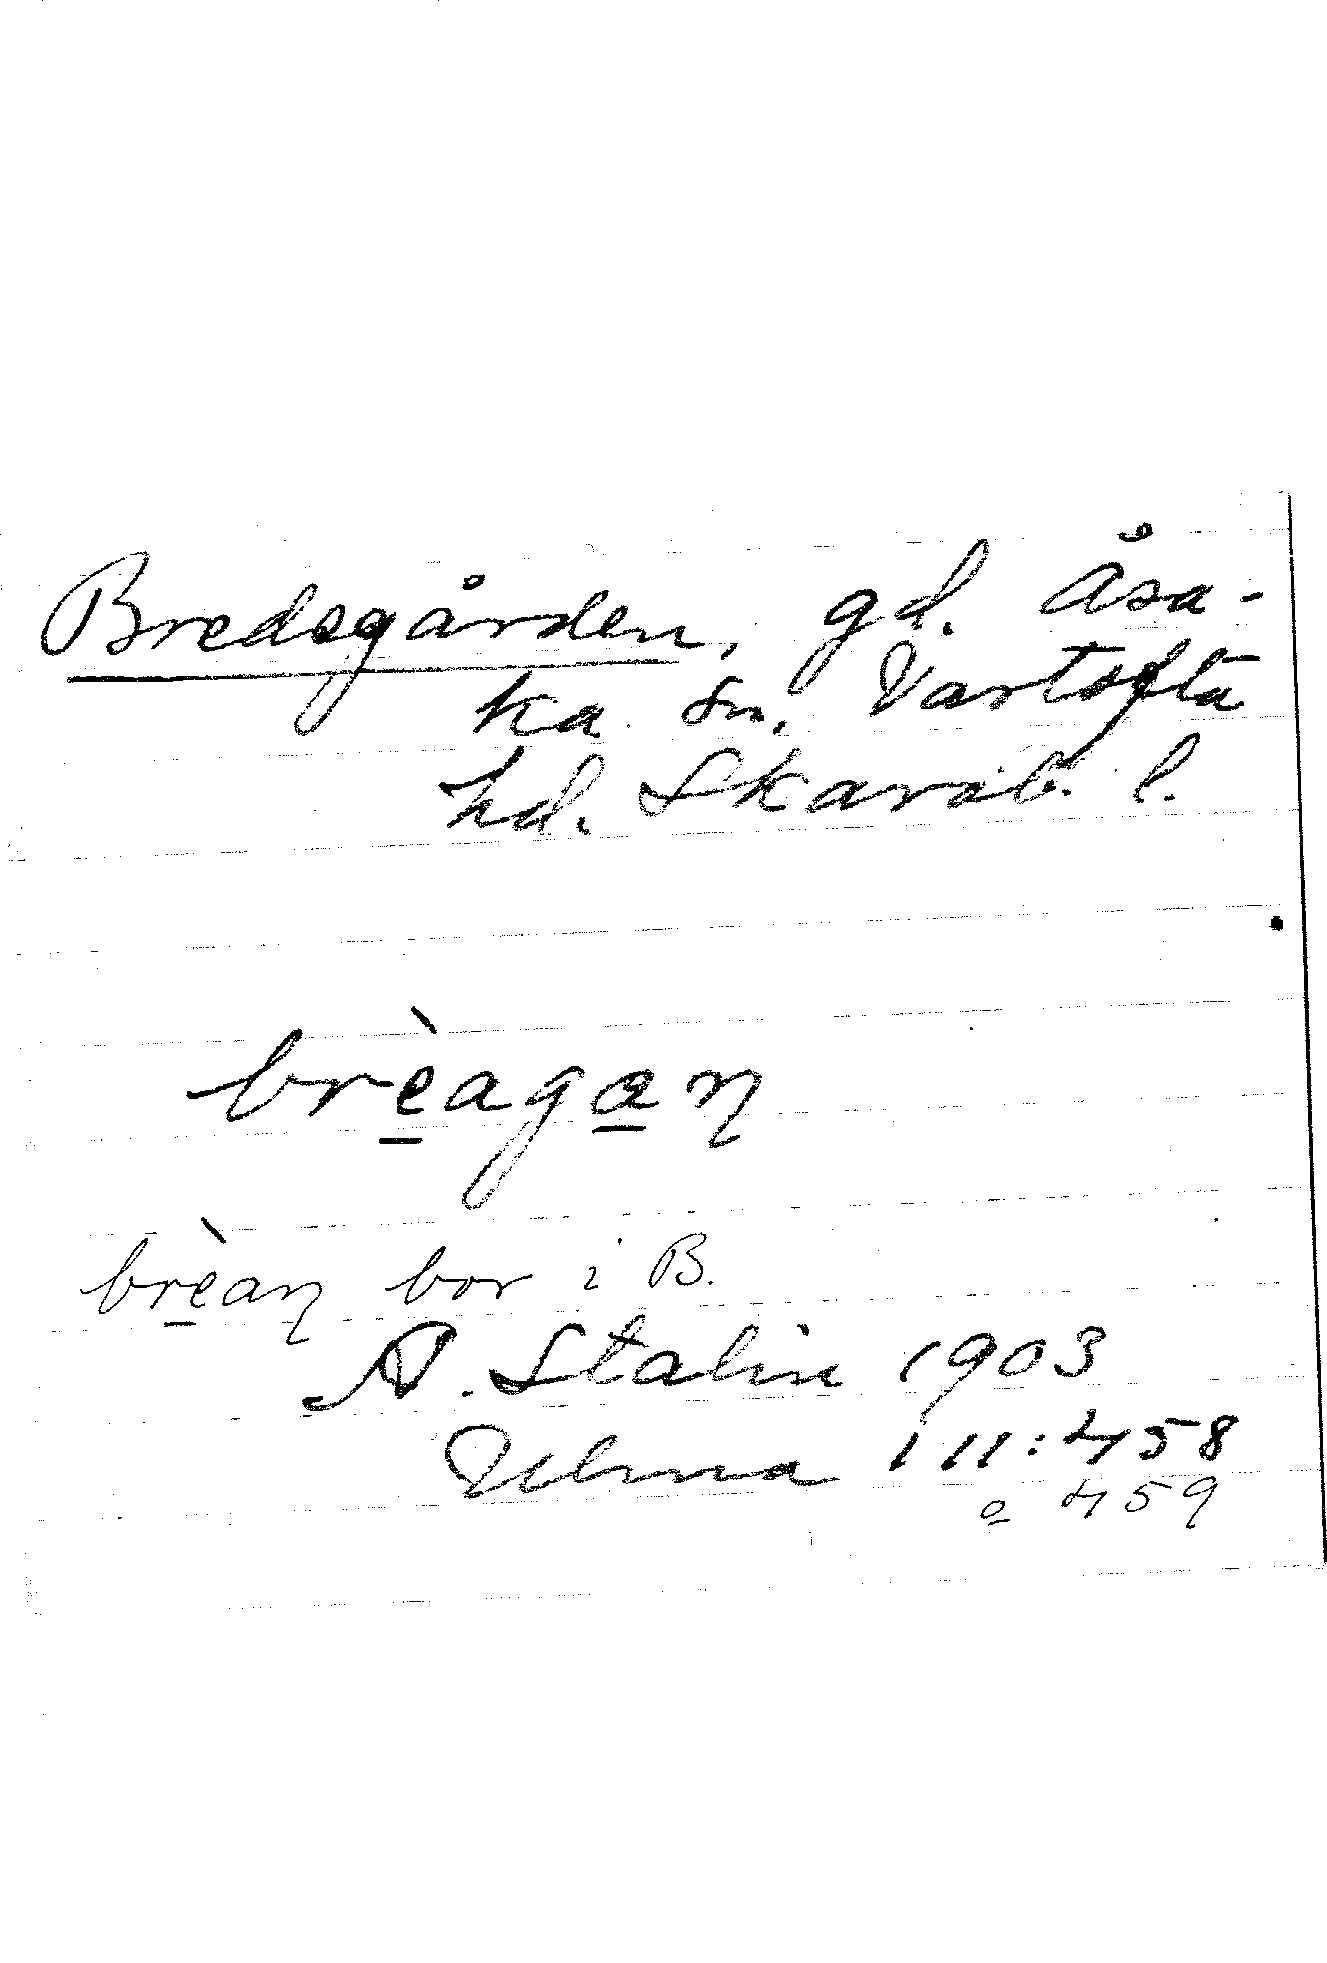 Bredsgården, gd. Åsa-
ka sn. Vartofta
hd. Skarab. l.
brèagan
brèan bor i B.
A. Stalin 1903
Ulma 111:458
o 459